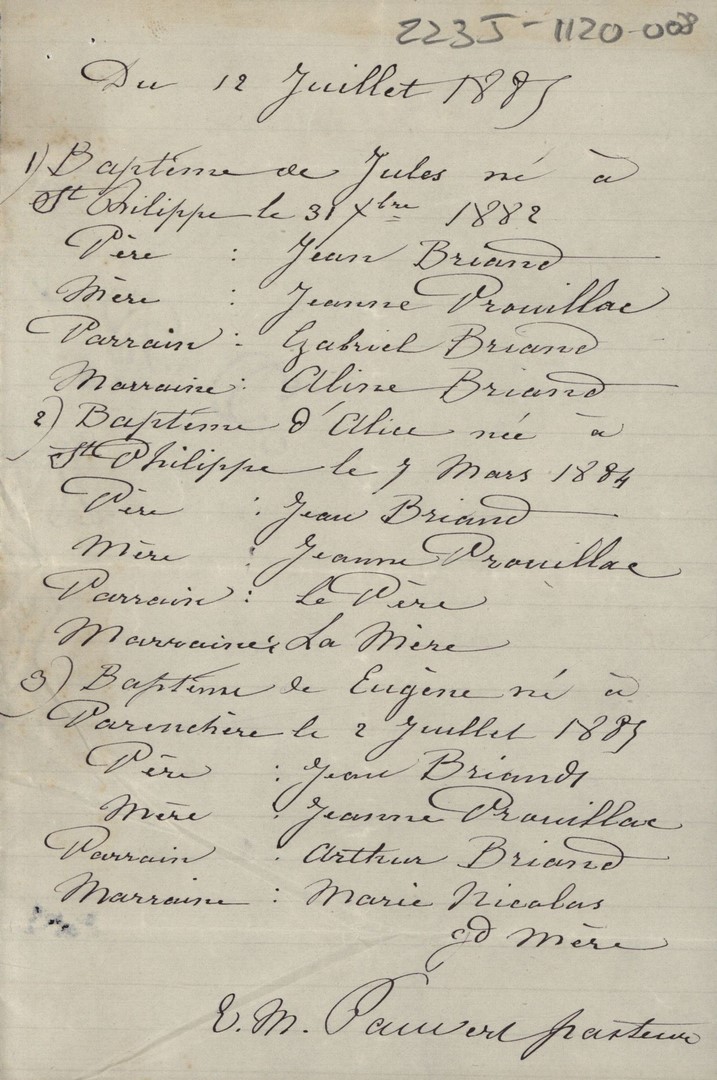 223J-1120-008
Du 12 Juillet 1885
1) Baptême de Jules né à
St Philippe le 31 Xbre 1882
Père : Jean Briand
Mère : Jeanne Prouillac
Parrain : Gabriel Briand
Marraine : Aline Briand
2) Baptême d'Alice née à
St Philippe le 7 Mars 1884
Père : Jean Briand
Mère : Jeanne Prouillac
Parrain : Le Père
Marraine : La Mère
3) Baptême de Eugène né à
Parenchère le 2 Juillet 1885
Père : Jean Briand
Mère : Jeanne Prouillac
Parrain : Arthur Briand
Marraine : Marie Nicolas
gd Mère
E. M. pasteur